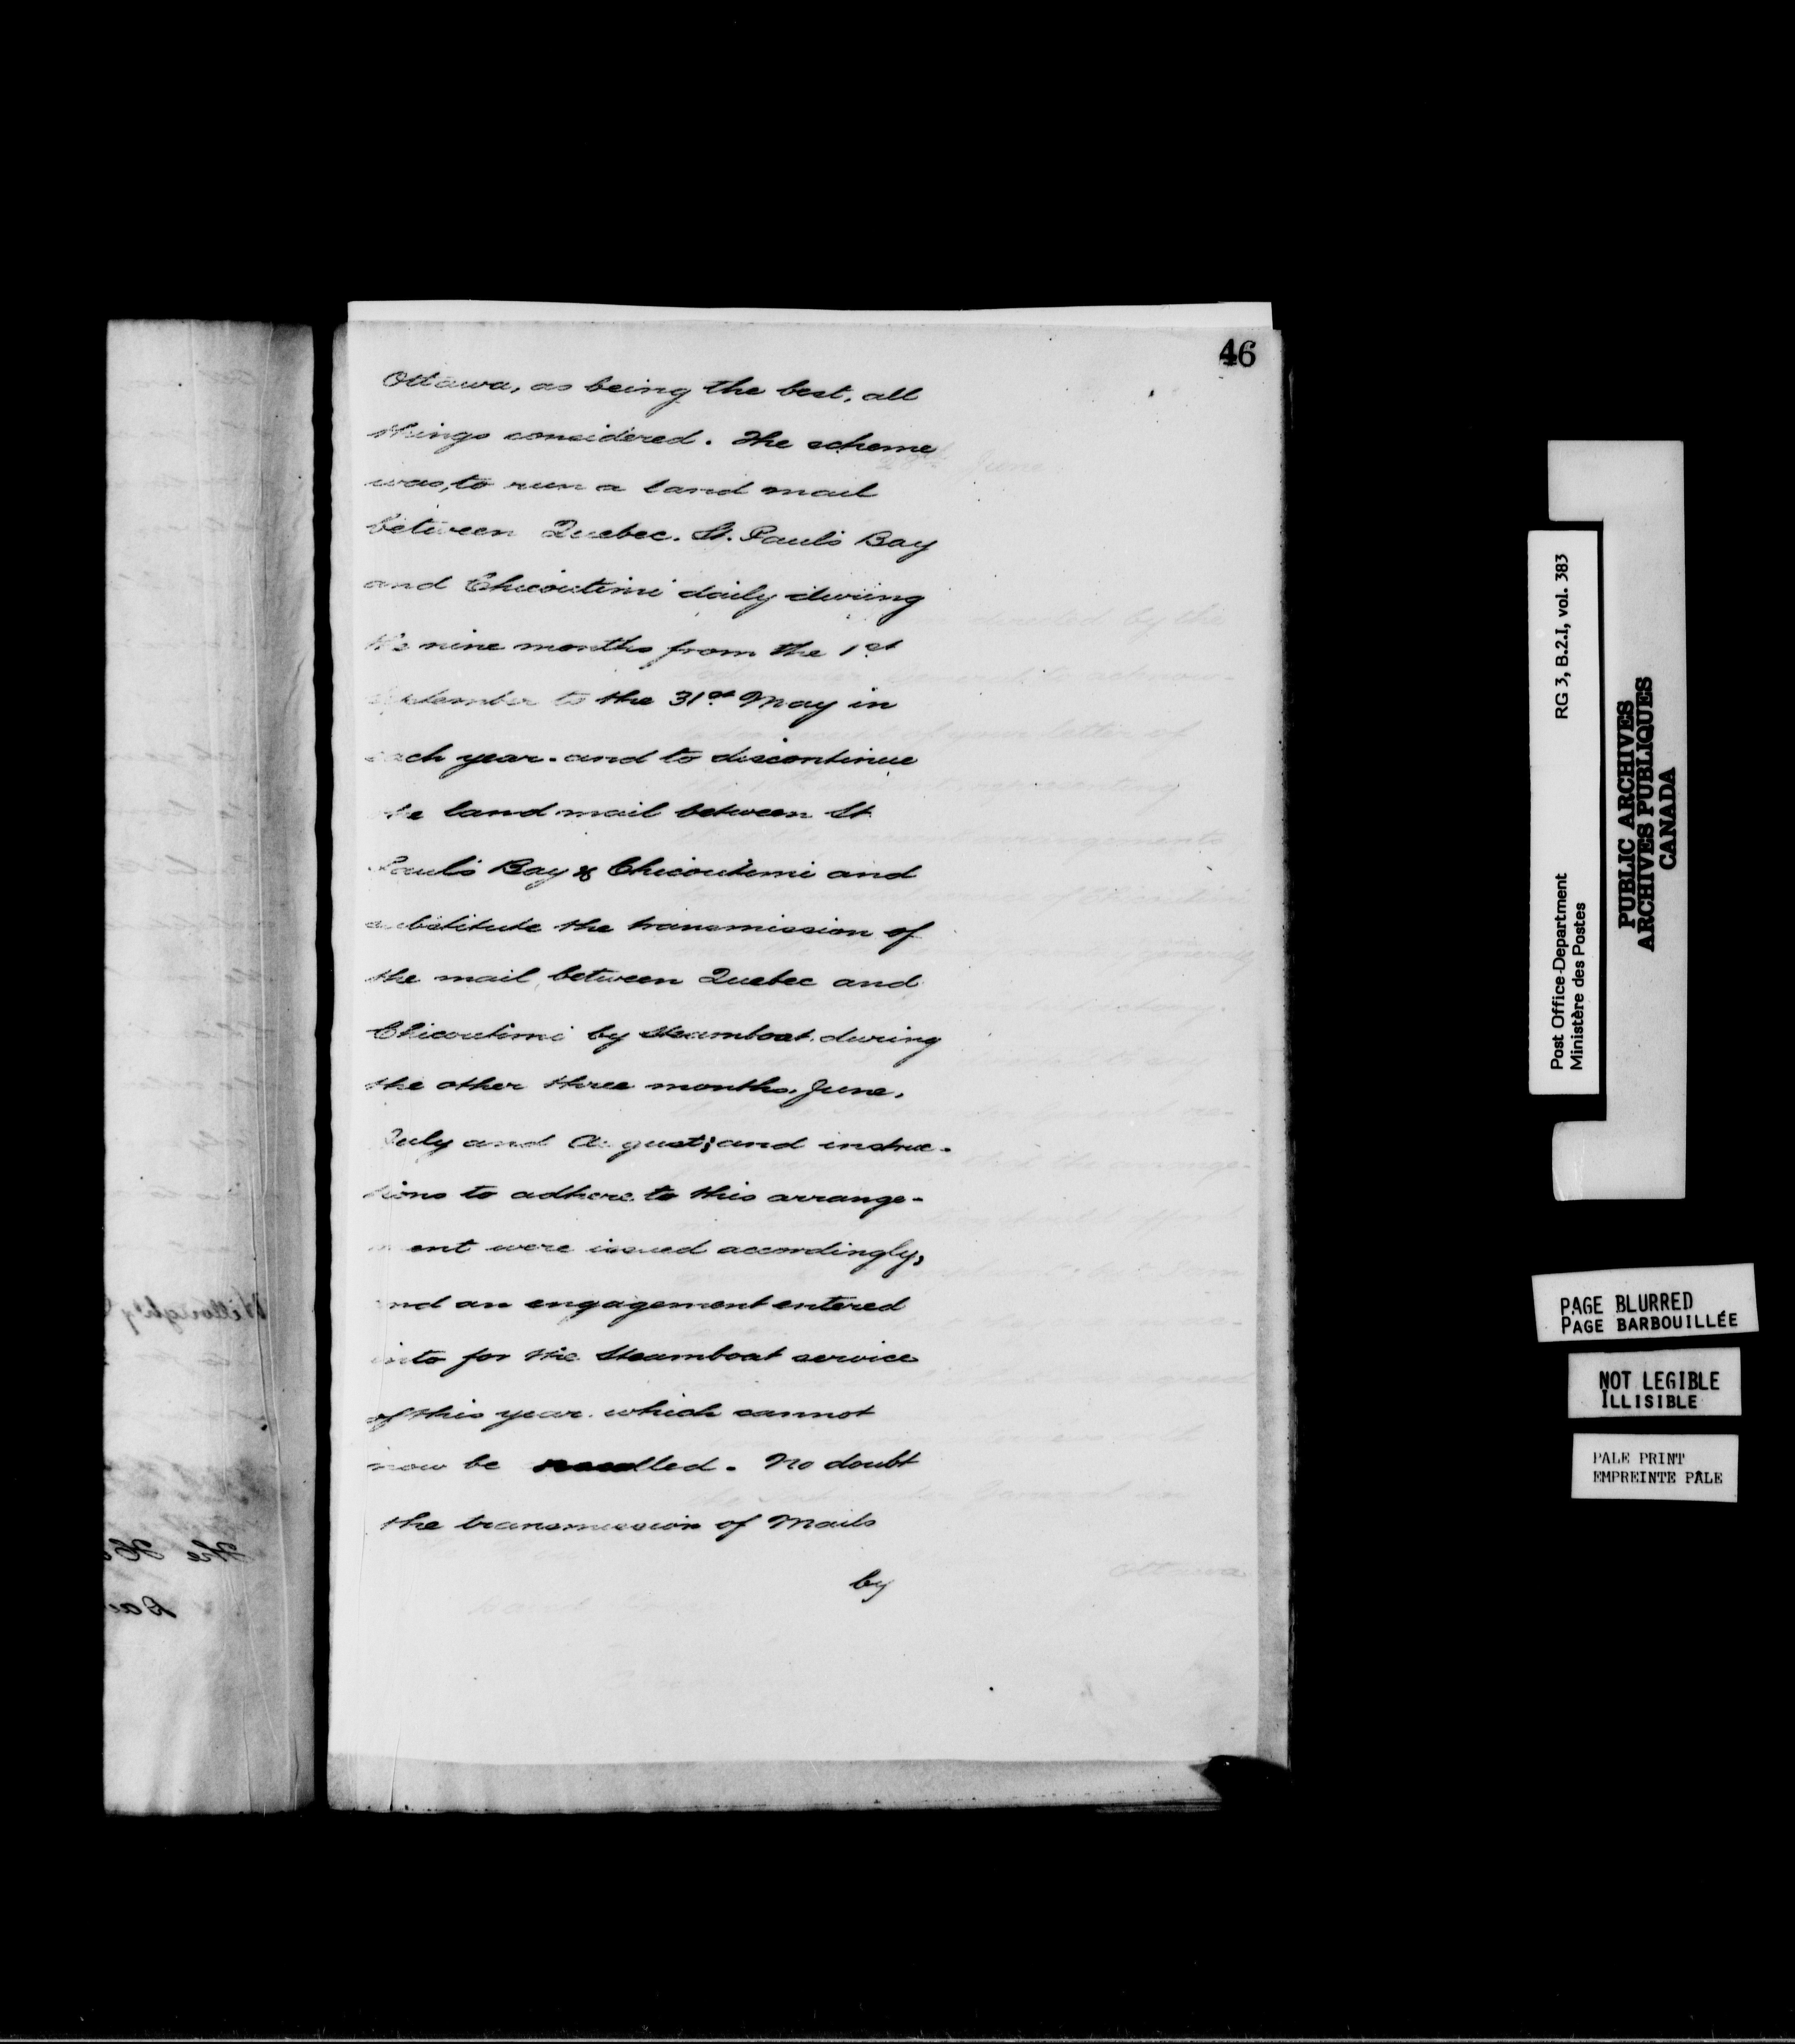 46
Ottawa, as being the best, all
things considered. The scheme
was, to run a land mail
between Quebec. St. Paul's Bay
and Chicoutimi daily during
the nine months from the 1st
September to the 31st May in
each year. and to discontinue
the land mail between St
Paul's Bay & Chicoutimi and
substitute the transmission of
the mail, between Quebec and
Chicoutimi by Steamboat. during
the other three months, June,
July and August; and instruc-
tions to adhere to this arrange-
ment were issued accordingly,
and an engagement entered
into for the Steamboat service
of this year. which cannot
now be No doubt
the transmission of Mails
by
Post Office Department RG 3, B.2.I, vol. 383
Ministère des Postes
PUBLIC ARCHIVES
ARCHIVES PUBLIQUES
CANADA
PAGE BLURRED
PAGE BARBOUILLÉE
NOT LEGIBLE
ILLISIBLE
PALE PRINT
EMPREINTE PÂLE